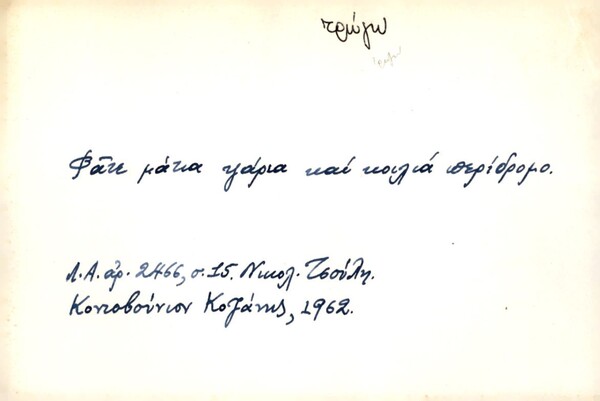 τρώγω
Φᾶτε μάτια ψάρια καί κοιλιά περίδρομο.
Λ.Α. ἀρ. 2466, σ. 15. Νικολ. Τσούλη.
Κοντοβούνιον Κοζάνης, 1962.